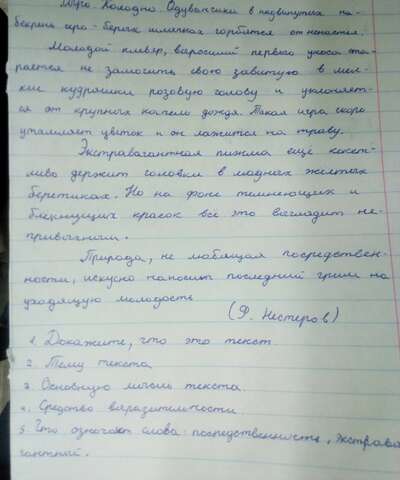 Мура. Холодно. Одуванчики в надвинутых на-
бекрень серо-белых шляпках горбятся от ненастья.
Молодой клевер, выросший первого укоса ста-
рается не замочить свою завитую в мел-
кие кудряшки розовую голову и уклоняет-
ся от крупных капель дождя. Такая игра скоро
утомляет цветок и он ложится на траву.
Экстравагантная пижма ещё кокет-
ливо держит головки в модных желтых
беретиках. Но на фоне темнеющих и
блекнущих красок всё это выглядит не-
привычным.
Природа, не любящая посредствен-
ности, искусно наносит последний грим на
уходящую молодость
(Ф. Нестеров)
1. Докажите, что это текст
2. Тему текста
3. Основную мысль текста.
4. Средство выразительности
5. Что означают слова: посредственность, экстрава
гантный.